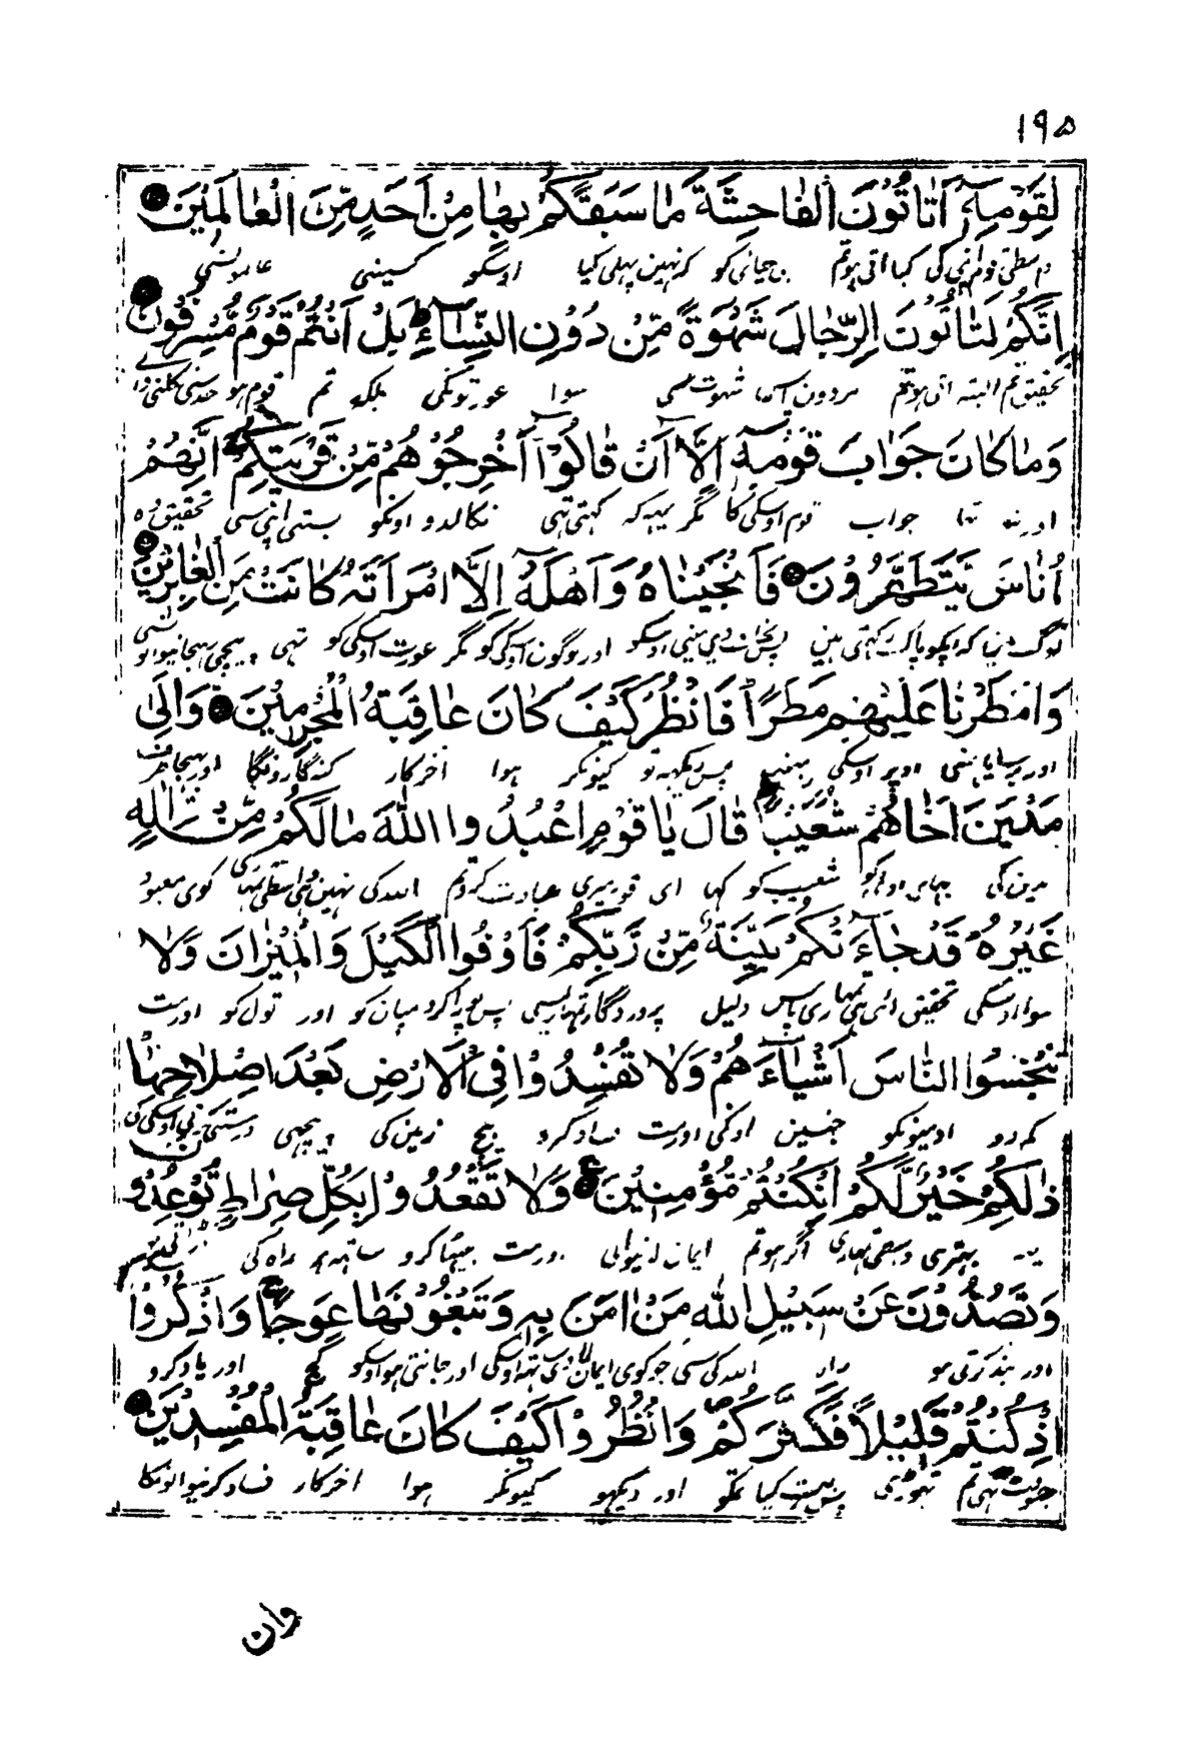 ١٩٥
لِقَوْمِهٖٓ اَتَاْتُوْنَ الْفَاحِشَةَ مَا سَبَقَكُمْ بِهَا مِنْ اَحَدٍ مِّنَ الْعَالَمِيْنَ
واسطی قوم اپنی کی کیا اتی ہو تم بی حیائی کو کہ نہین پہلی کیا اوسکو کسینی عالمونسی
اِنَّكُمْ لَتَاْتُوْنَ الرِّجَالَ شَهْوَةً مِّنْ دُوْنِ النِّسَآءِ ط بَلْ اَنْتُمْ قَوْمٌ مُّسْرِفُوْنَ
تحقیق تم البتہ اتی ہو تم مردون شہوت سی سوا عورتونکی بلکہ تم قوم ہو حدسی نکلنی والی
وَمَا كَانَ جَوَابَ قَوْمِهٖٓ اِلَّآ اَنْ قَالُوْٓا اَخْرِجُوْهُمْ مِّنْ قَرْيَتِكُمْ اِنَّهُمْ
اور نہ تہا جواب قوم اوسکی کا مگر یہہ کہ کہتی تہی نکالدو اونکو بستی اپنی سی تحقیق وہ
اُنَاسٌ يَّتَطَهَّرُوْنَ فَاَنْجَيْنَاهُ وَاَهْلَهٗٓ اِلَّا امْرَاَتَهٗ كَانَتْ مِنَ الْغَابِرِيْنَ
پس نجات دی ہمنی اوسکو اور لوگون اوسکی کو مگر عورت اوسکی کو تہی پیچہی
وَاَمْطَرْنَا عَلَيْهِمْ مَطَرًا فَانْظُرْ كَيْفَ كَانَ عَاقِبَةُ الْمُجْرِمِيْنَ وَاِلٰى
اور برسایا ہمنی اوپر اونکی مینہہ پس دیکہہ تو کیونکر ہوا اخرکار گنہگارونکا اور بہیجا طرف
مَدْيَنَ اَخَاهُمْ شُعَيْبًا قَالَ يَا قَوْمِ اعْبُدُوا اللّٰهَ مَا لَكُمْ مِّنْ اِلٰهٍ
مدین کی بہائی اونکی کو شعیب کو کہا ای قوم میری عبادت کرو تم اللہ کی نہین ہی واسطی تمہاری کوی معبود
غَيْرُهٗ قَدْ جَآءَتْكُمْ بَيِّنَةٌ مِّنْ رَّبِّكُمْ فَاَوْفُوا الْكَيْلَ وَالْمِيْزَانَ وَلَا
سوا اوسکی تحقیق ائی ہی تمہاری پاس دلیل پروردگار تمہاریسی پس پورا کرو میان کو اور تول کو اور مت
تَبْخَسُوا النَّاسَ اَشْيَآءَهُمْ وَلَا تُفْسِدُوْا فِى الْاَرْضِ بَعْدَ اِصْلَاحِهَا
کم دو ادمیونکو چیزین اونکی اور مت فساد کرو بیچ زمین کی پیچہی درستکی اوسکی کی
ذٰلِكُمْ خَيْرٌ لَّكُمْ اِنْ كُنْتُمْ مُّؤْمِنِيْنَ وَلَا تَقْعُدُوْا بِكُلِّ صِرَاطٍ تُوْعِدُوْنَ
یہہ بہتر ہی واسطی تمہاری اگر ہو تم ایمان لانیوالی اور مت بیٹہا کرو ساتہہ ہر راہ کی
وَتَصُدُّوْنَ عَنْ سَبِيْلِ اللّٰهِ مَنْ اٰمَنَ بِهٖ وَتَبْغُوْنَهَا عِوَجًا ج وَاذْكُرُوْا
اور بند کرتی ہو راہ اللہ کی سی جو کوی ایمان لاوی ساتہہ اوسکی اور جانتی ہو اوسکو کج اور یاد کرو
اِذْ كُنْتُمْ قَلِيْلًا فَكَثَّرَكُمْ ص وَانْظُرُوْا كَيْفَ كَانَ عَاقِبَةُ الْمُفْسِدِيْنَ
جسوقت تہی تم تہوڑی پس بہت کیا تمکو اور دیکہو کیونکر ہوا اخرکار فساد کرنیوالونکا
وان